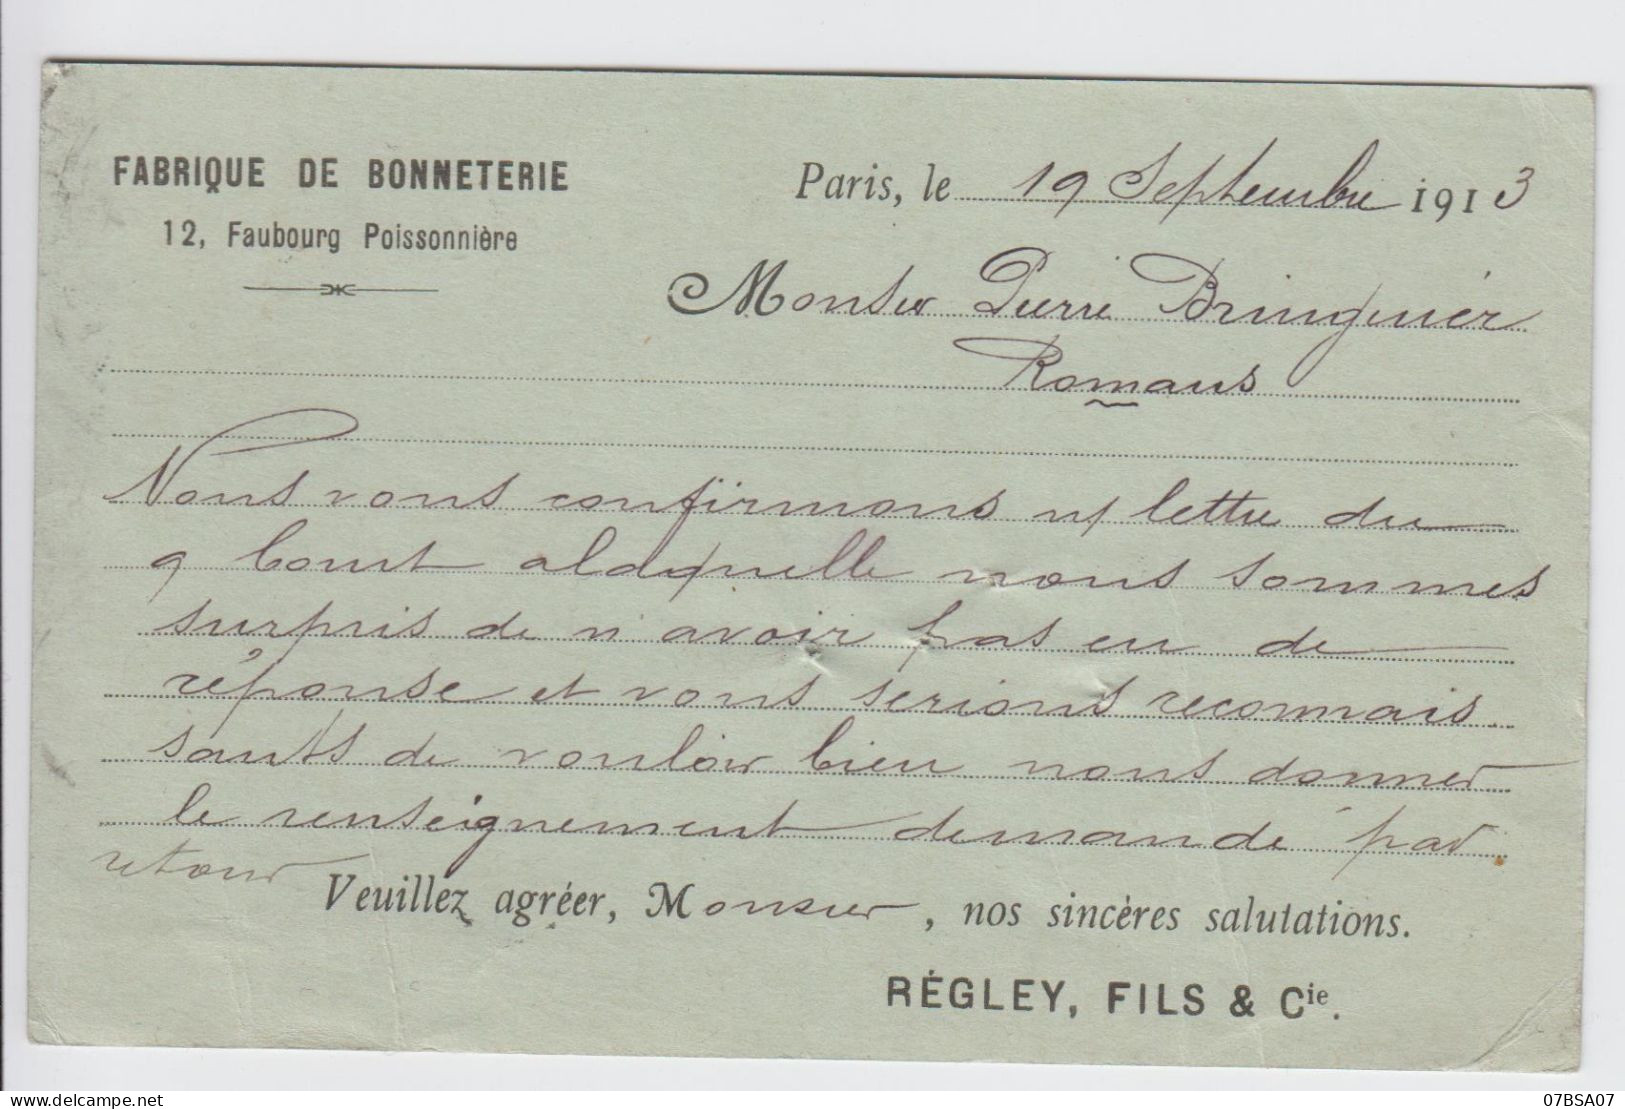 FABRIQUE DE BONNETERIE
12, Faubourg Poissonnière
Paris, le 19 Septembre 1913
Monsieur Pierre Bringuier
Romans
Nous vous confirmons n/ lettre du
9 Court a laquelle nous sommes
surpris de n'avoir pas eu de
réponse et vous serions reconnais
sants de vouloir bien nous donner
le renseignement demandé par
retour
Veuillez agréer, Monsieur, nos sincères salutations.
RÉGLEY, FILS & Cie.
07BSA07